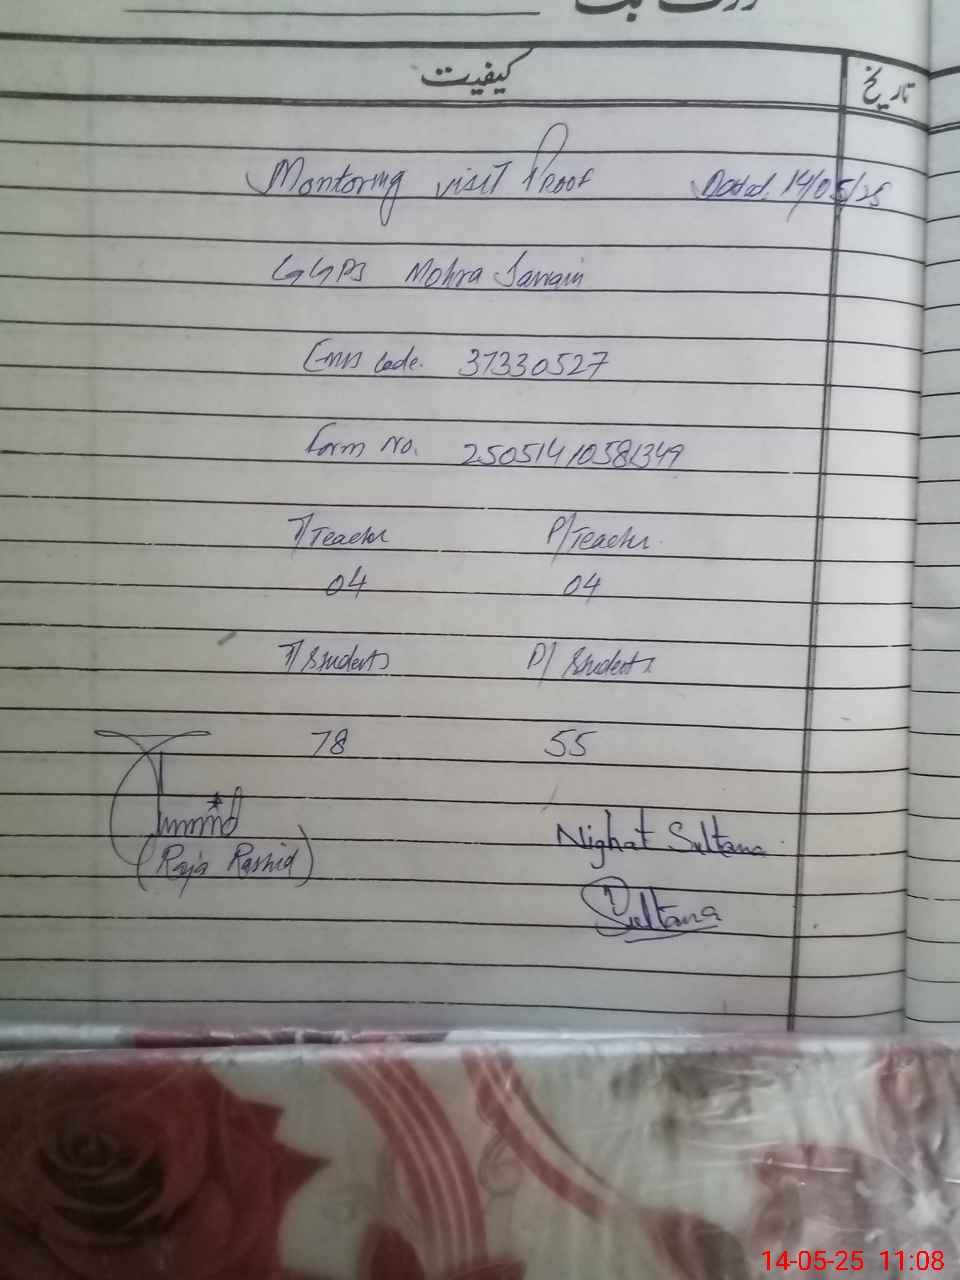 کیفیت تاریخ
Montoring visit Proof Dated. 14/05/25
GGPS Mohra
EMIS Code. 37330527
Form No. 25051410581349
T/Teacher P/Teacher.
04 04
T/Students P/ Students
78 55
(Raja Rashid)
Nighat Sultana
Sultana
14-05-25 11:08